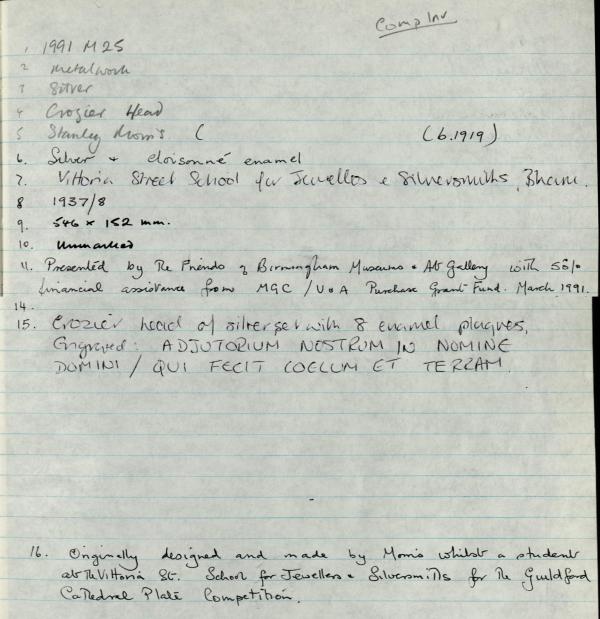 Comp Inv
1 1991 M25
2 metalwork
3 Silver
4 Crozier Head
5 Stanley Morris ( (b.1919)
6. Silver + cloisonné enamel
7. Vittoria Street School for Jewellers & Silversmiths, Bham.
8 1937/8
9. 546 x 152 mm.
10. Unmarked
11. Presented by the Friends of Birmingham Museums & Art Gallery with 50%
financial assistance from MGC / V&A Purchase Grant Fund. March 1991.
14.
15. Crozier head of silver set with 8 enamel plaques,
Engraved: ADJUTORIUM NOSTRUM IN NOMINE
DOMINI / QUI FECIT COELUM ET TERRAM.
16. Originally designed and made by Morris whilst a student
at the Vittoria St. School for Jewellers & Silversmiths for the Guildford
Cathedral Plate Competition.